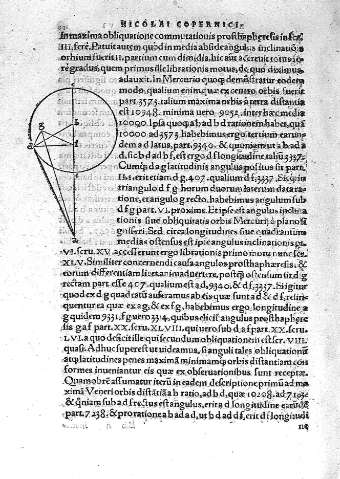 NICOLAI COPERNICI
In maxima obliquatione commutationis prosthaphæresis infra
III. ferè. Patuit autem quòd in media abside angulus inclinatiõis
orbium fuerit II. partium cum dimidia, hic
re gradus, quem primus ille librationis motus, de quo diximus
adauxit. In Mercurio quoq; demõstratur eodem
modo, qualium enim quæ ex cẽtro orbis fuerit
part. 3573. talium maxima orbis à terra distantia
est 10948. minima uero 9052. inter hæc media
10000. Ipsa quoq; a b ad b d rationem habet, quã
10000 ad 3573. habebimus ergo tertium earundem
a d latus, part. 9340. & quoniam ut a b ad a
d, sic b d ad b f, est ergo d f longitudine taliũ 3337.
Cumq; d a g latitudinis angulus positus sit part.
III. erit etiam d g 407. qualium d f 3337. Et sic in
triangulo d f g horum duorum laterum data ratione,
& angulo g recto, habebimus angulum sub
d f g part. VI. proxime. Et ipse est angulus inclinationis
siue obliquitatis orbis Mercurij à plano
signiferi. Sed circa longitudines siue quadrantum
medias ostensus est ipse angulus inclinationis
VI. scru. XV. accesserunt ergo librationi primo motu nunc
XLV. Similiter concernendi causa angulos prosthaphæresis, &
eorum differentiam licet animaduertere, postq̃ ostensum sit d g
rectam part. esse 407. qualium est a d, 9340. & d f, 3337. Si igitur
quod ex d g quadratũ auferamus ab eis quæ sunt a d & d f, relinquentur
ea quæ ex a g, & ex f g, habebimus ergo longitudine a
g quidem 9331. f g uero 3314. quibus elicit angulus prosthaphæresis
g a f part. XX. scru. XLVIII. qui uero sub d a f part. XX. scru.
LVI. à quo deficit ille qui secundum obliquationem est scr. VIII.
quasi. Adhuc superest ut uideamus, si anguli tales obliquationũ
atq; latitudinis penes maximã & minimamq; orbis distantiam conformes
inueniantur eis quæ ex obseruationibus sunt receptæ.
Quam ob rẽ assumatur iterũ in eadem descriptione primũ ad maximã
Veneris orbis distãtiã a b ratio, ad b d, quæ 10208. ad 7193
& qm̃ sub a d b rectus est angulus, erit a d longitudine earundẽ
part. 7238. & pro ratione a b ad a d, ut b d ad d f, erit d f longitudi